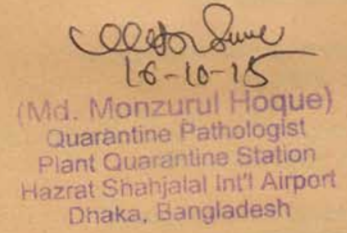 16-10-15
(Md. Monzurul Hoque)
Quarantine Pathologist
Plant Quarantine Station
Hazrat Shahjalal Int'l Airport
Dhaka, Bangladesh